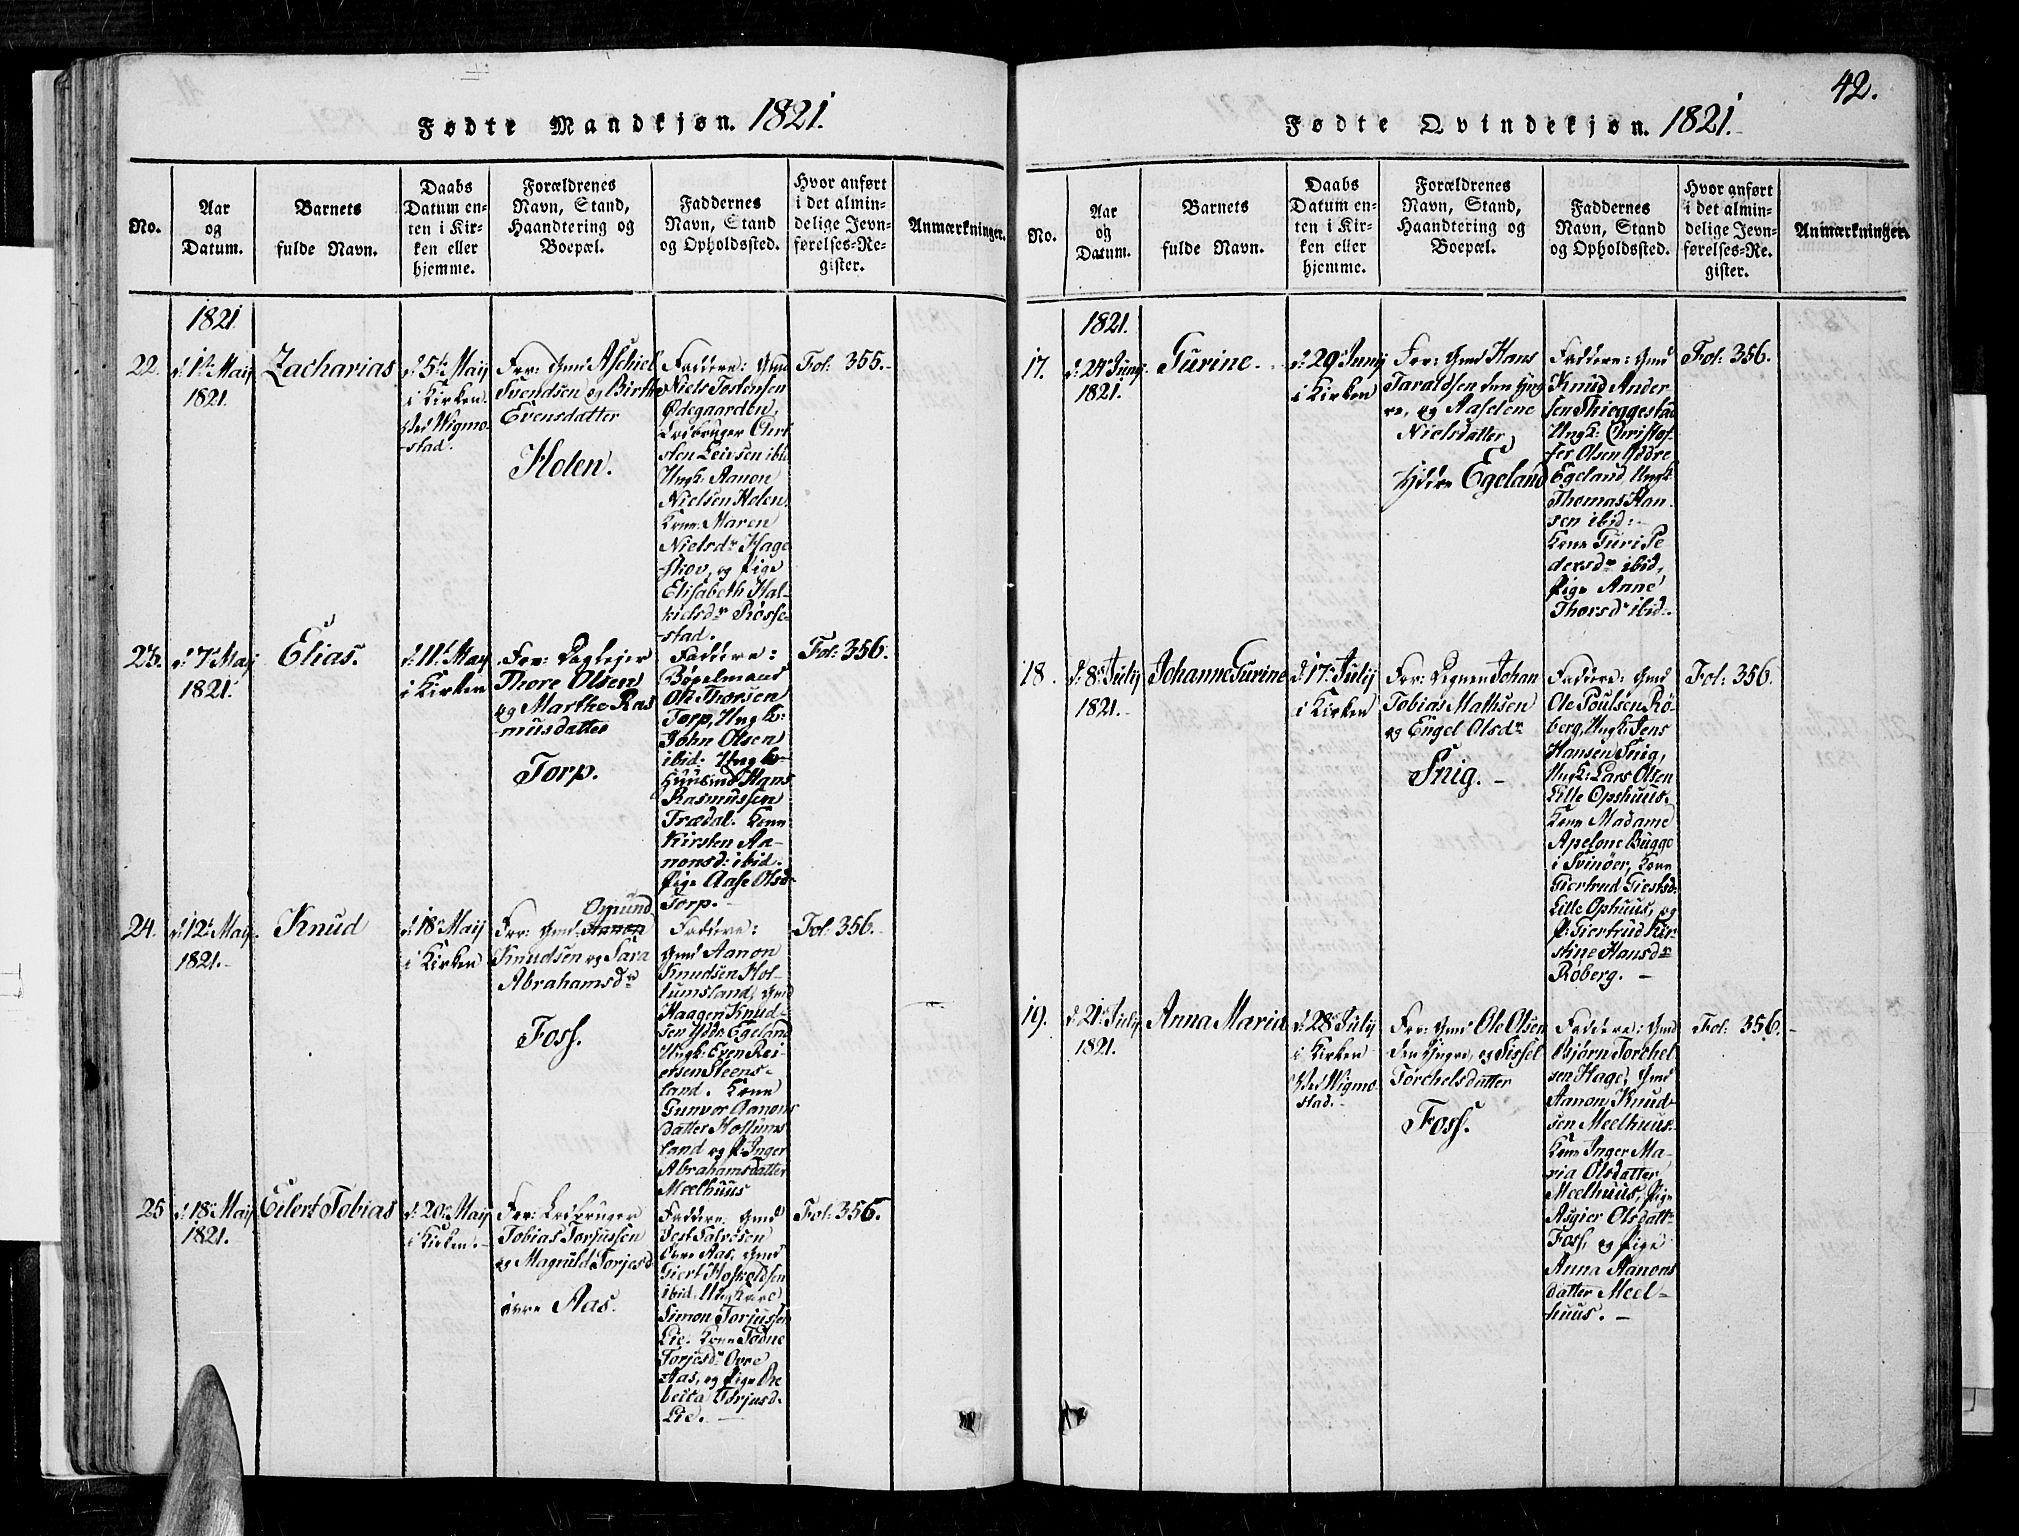 Fødte Mandkjøn. 1821.
No.
Aar
og
Datum.
Barnets
fulde Navn.
Daabs
Datum en-
ten i Kir-
ken eller
hjemme.
Forældrenes
Navn, Stand,
Haandtering og
Boepæl.
Faddernes
Navn, Stand
og Opholdssted.
Hvor anført
i det almin-
delige Jevn-
førelses-Re-
gister.
Anmærkninger.
1821
22.
d: 1te Maij
1821.
Zacharias
d: 5te Maij
i Kirken
ved Wigmo-
stad.
For: Gmd Aschiel
Svendsen og Birthe
Evensdatter
Holen.
Faddere: Gmd
Niels Tostensen
Ødegaarden,
Leibruger Chri
sten Leivsen ibid
Ungk: Aanon
Nielsen Holen.
Kone: Maren
Nielsdr Hage
skov, og Pige
Elisabeth Hal-
kielsdr Røsse-
stad.
Fol: 355.
23.
d: 7de Maij
1821.
Elias.
d: 11te Maij
i Kirken
For: Dagleier
Thore Olsen
og Marthe Ras
musdatter
Torp.
Faddere:
Bøpelmand
Ole Thorsen
Torp, Ungk:
John Olsen
ibid: Ungk:
Huusmd Hans
Rasmussen
Trædal. Kone
Kirsten Aa-
nonsd: ibid.
Pige Aase Olsd
Torp.
Fol: 356.
24.
d: 12te Maij
1821.
Knud
d: 18de Maij
i Kirken
Omund
For: Gmd Aanon
Knudsen og Sara
Abrahamsdr
Foss.
Faddere:
Gmd Aanon
Knudsen Hol-
lumsland, Gmd
Haagen Knud-
sen Ydre Egeland
Ungk: Even Rei-
ersen Steens-
land. Kone
Gunvor Aanons
datter Hollums
land og P: Inger
Abrahamsdatter
Meelhuus
Fol: 356.
25
d: 18de Maij
1821.
Eilert Tobias
d: 20de Maij
i Kirken.
For: Leibruger
Tobias Torjussen
og Magnild Torjesd
øvre Aas.
Faddere: Gmd
Jest Salvesen
Øvre Aas, Gmd
Giert Hoskoldsen
ibid, Ungkarle
Simon Torjussen
Lie. Kone Todne
Torjesdr Øvre
Aas, og Pige Be
beita Torjusd.
Lie.
Fol: 356.
42.
Fødte Qvindekjøn. 1821.
No.
Aar
og
Datum.
Barnets
fulde Navn.
Daabs
Datum en-
ten i Kir-
ken eller
hjemme.
Forældrenes
Navn, Stand,
Haandtering og
Boepæl.
Faddernes
Navn, Stand
og Opholdssted.
Hvor anført
i det almin-
delige Jevn-
førelses-Re-
gister.
Anmærkninger.
1821.
17.
d: 24de Junij
1821.
Gurine.
d: 29 Junij
i Kirken
For: Gmd Hans
Taraldsen den Yng
re, og Aaselene
Nielsdatter
Ydre Egeland
Faddere: Gmd
Knud Ander
sen Skieggestad
Ungk: Christof-
fer Olsen Ydre
Egeland, Ungk:
Thomas Han-
sen ibid:
Kone Guri Pe
dersdr ibid,
Pige Anne
Thorsdr ibid.
Fol: 356.
18.
d: 8de Julij
1821.
Johanne Gurine
d: 17de Julij
i Kirken
For: Degnen Johan
Tobias Mathsen
og Engel Olsdr
Snig.
Faddere: Gmd
Ole Poulsen Rø-
berg, Ungk: Jens
Hansen Snig,
Ungk: Lars Olsen
Lille Opshuus.
Kone Madame
Apelone Bugge
i Svinøer, Kone
Giertrud Giertsd.
Lille Ophuus, og
P: Giertrud Kir
stine Hansdr
Røberg.
Fol: 356.
19.
d: 21de Julij
1821.
Anna Maria
d: 28de Julij
i Kirken
ved Wigmo-
stad.
For: Gmd Ole Olsen
den Yngre, og Sissel
Torchelsdatter
Foss.
Faddere: Gmd
Bjørn Torchel
sen Hage, Gmd
Aanon Knud-
sen Meelhuus.
Kone Inger Ma-
ria Olsdatter
Meelhuus, Pige
Asgier Olsdatt:
Foss, og Pige
Anna Aanons
datter Meel-
huus.
Fol: 356.